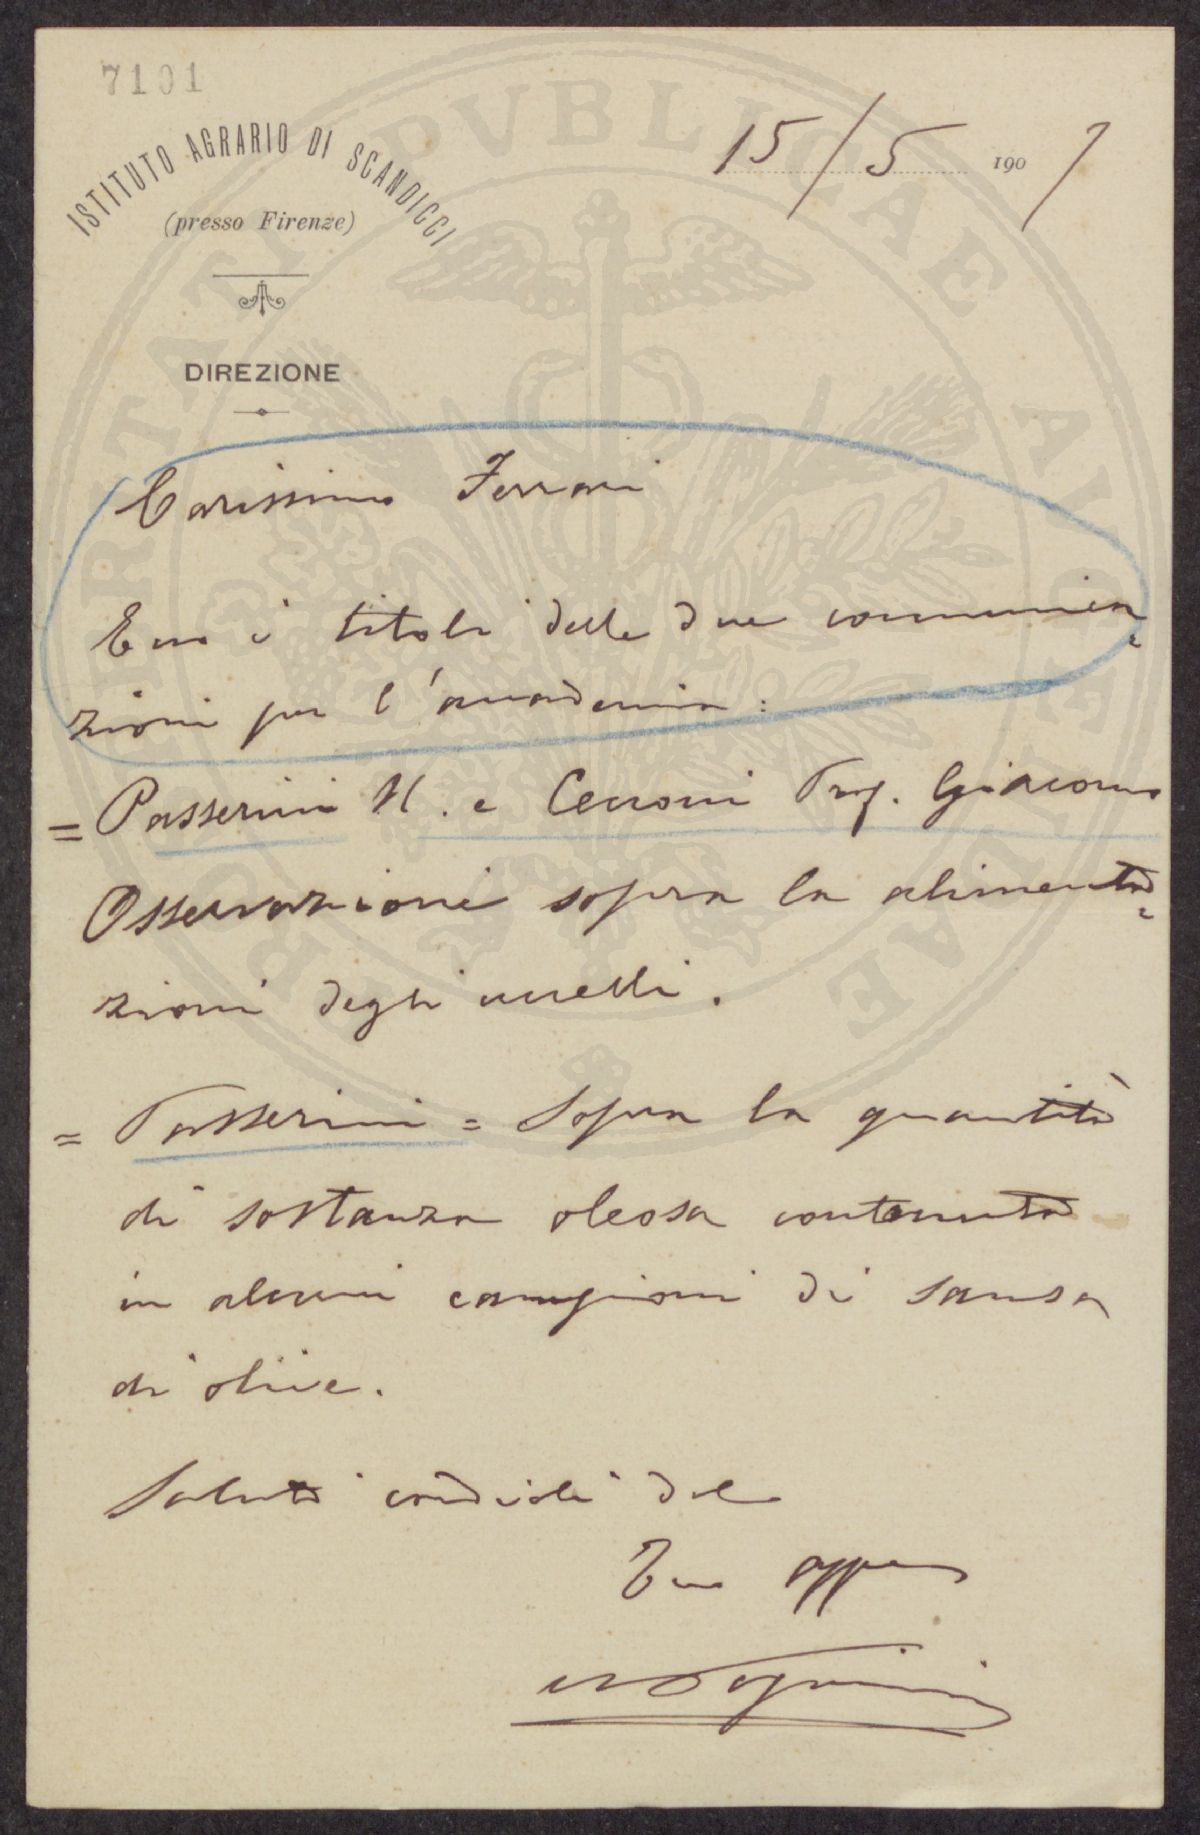 7101
ISTITUTO AGRARIO DI SCANDICCI
(presso Firenze)
DIREZIONE
15/5 1907
Carissimo Ferrari
Ecco i titoli delle due communica=
zioni per l'accademia:
= Passerini N. e Cecconi Prof. Giacomo
Osservazioni sopra la alimenta=
zioni degli uccelli.
= Passerini = Sopra la quantità
di sostanza oleosa contenuta
in alcuni campioni di sansa
di olive.
Saluti cordiali dal
Tuo
NPasserini
PVBLICAE AVCTORITATI